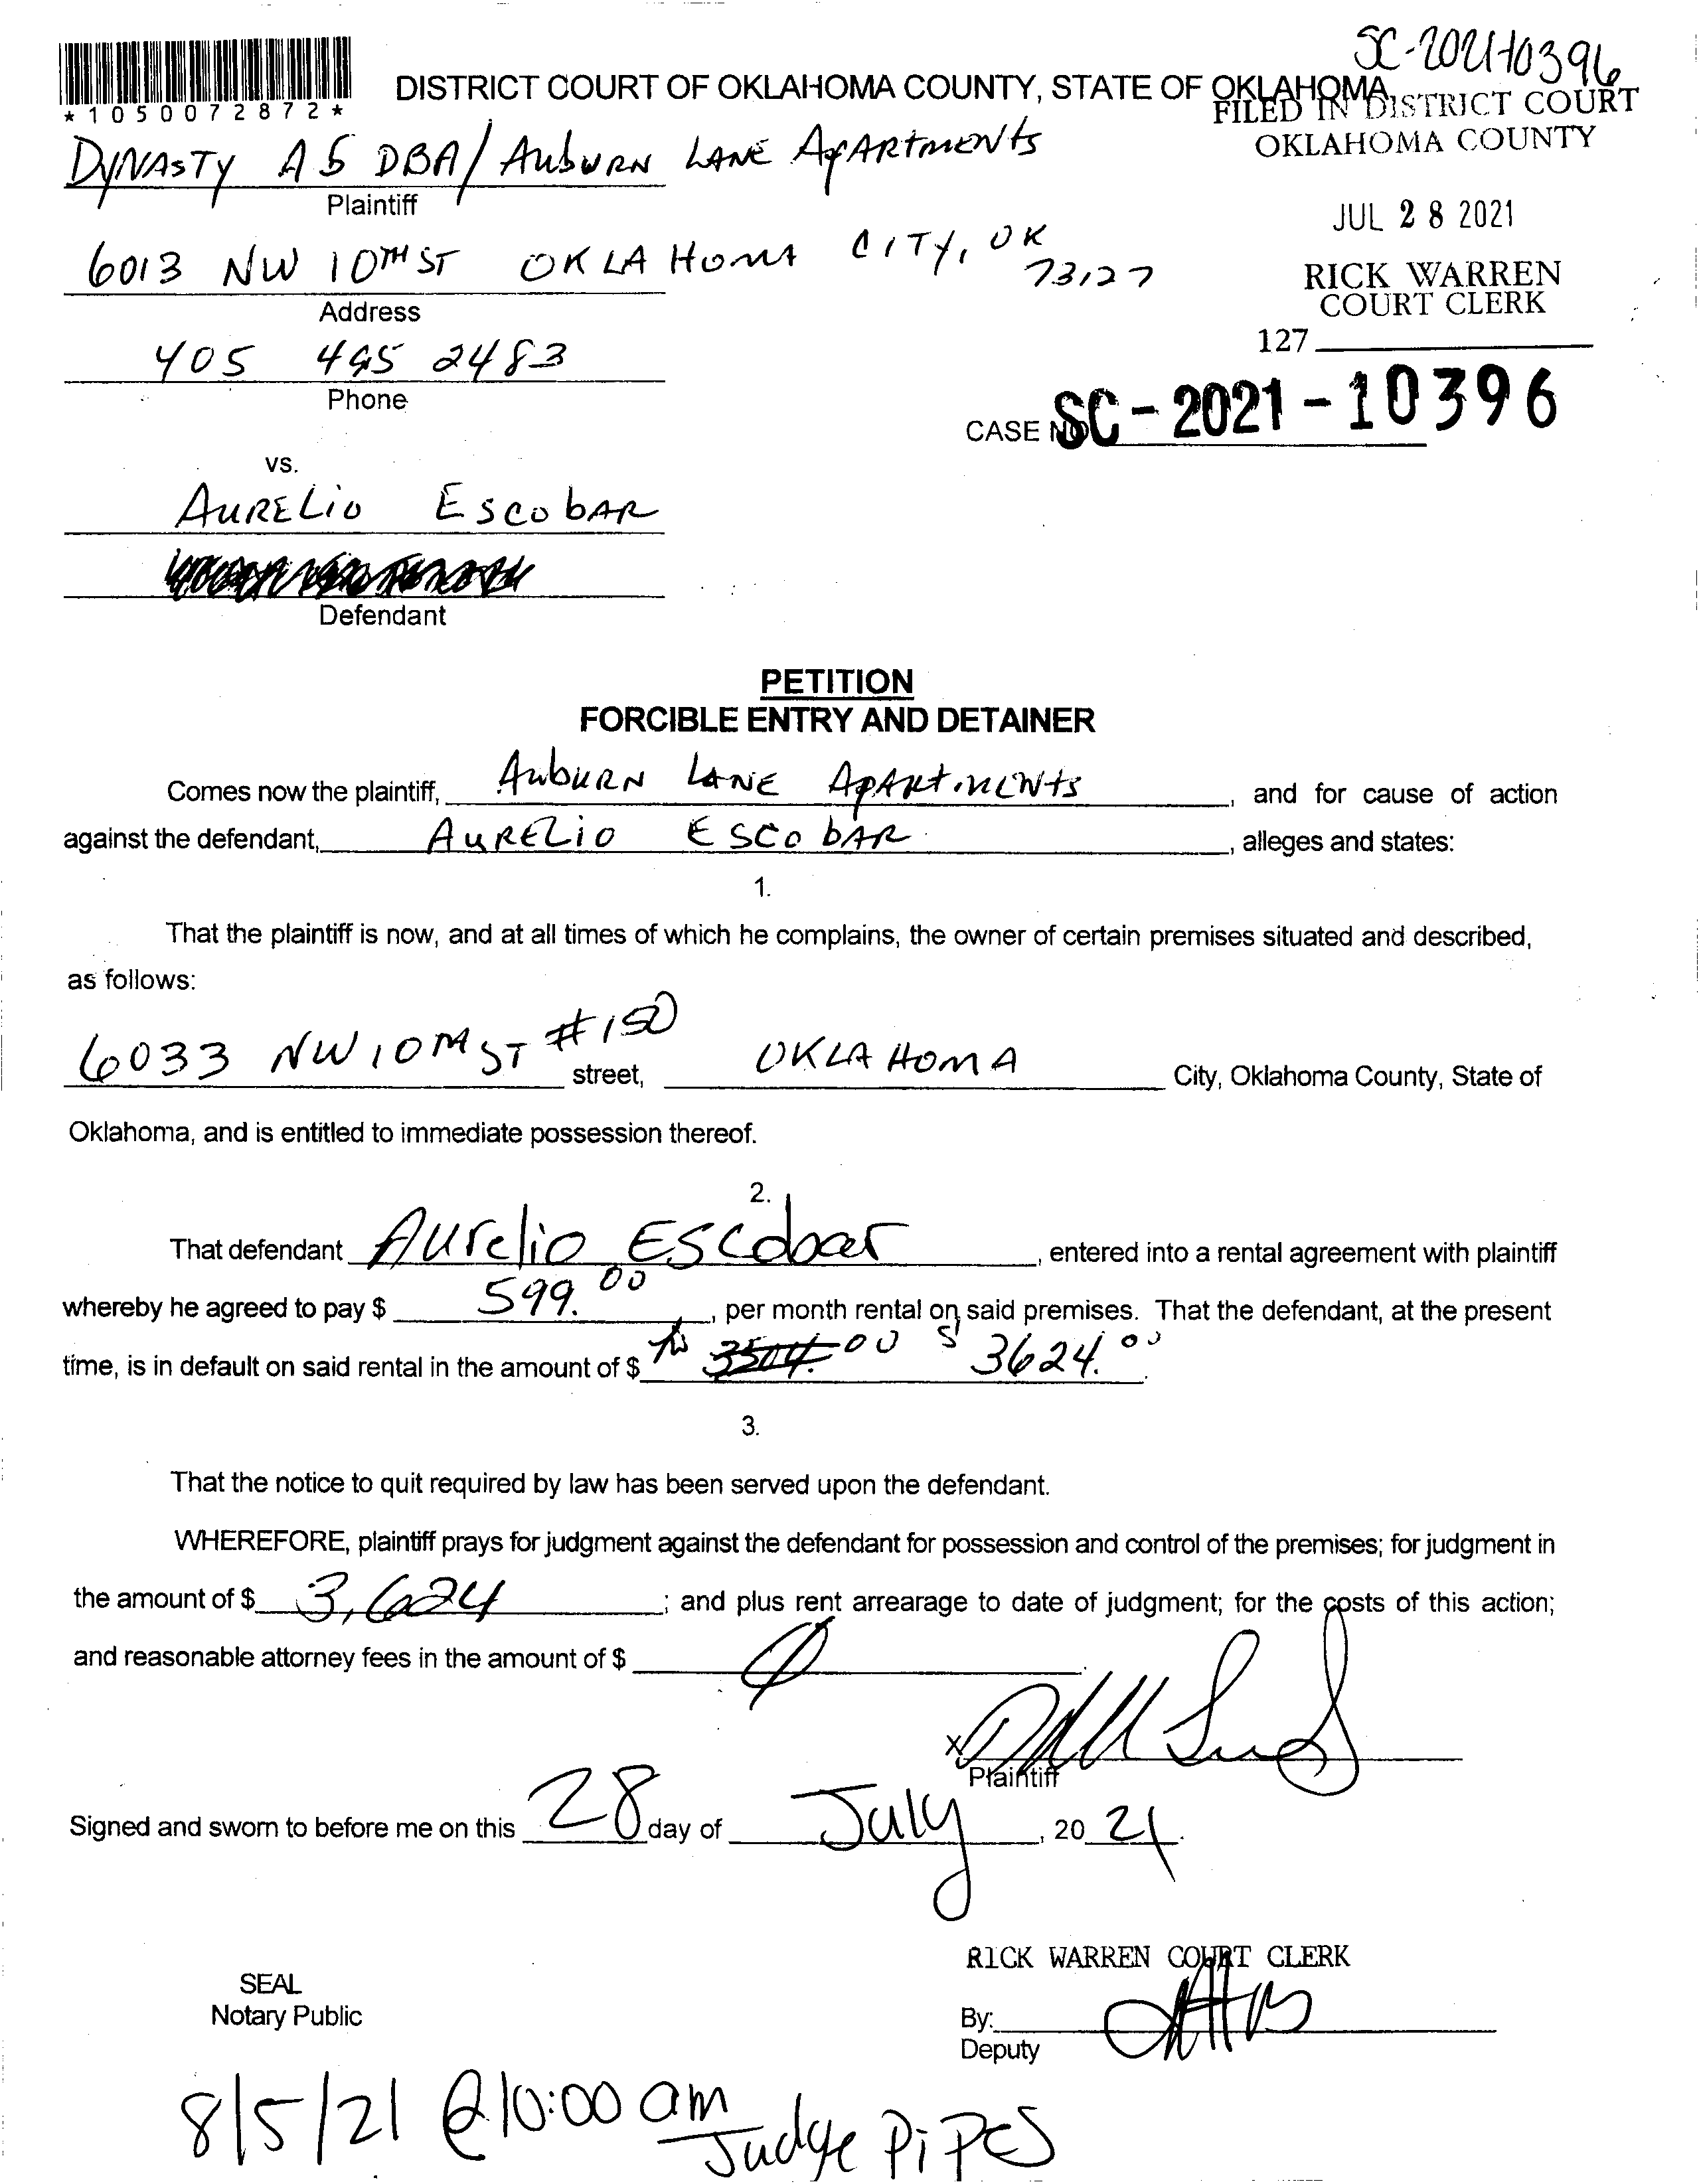 SC-2021-10396
DISTRICT COURT OF OKLAHOMA COUNTY, STATE OF OKLAHOMA
*1050072872*
FILED IN DISTRICT COURT
OKLAHOMA COUNTY
DYNASTY A5 DBA/ AubURN LANE APARTMENTS
Plaintiff
JUL 28 2021
6013 NW 10TH ST OKLAHOMA CITY, OK 73127
Address
RICK WARREN
COURT CLERK
127
405 495 2483
Phone
CASE NO. SC-2021-10396
vs.
AURELio EscobAR
Defendant
PETITION
FORCIBLE ENTRY AND DETAINER
Comes now the plaintiff, AubURN LANE APARtMENts, and for cause of action
against the defendant, AURELio EscobAR, alleges and states:
1.
That the plaintiff is now, and at all times of which he complains, the owner of certain premises situated and described,
as follows:
6033 NW 10TH ST #150 street, OKLAHOMA City, Oklahoma County, State of
Oklahoma, and is entitled to immediate possession thereof.
2.
That defendant Aurelio Escobar, entered into a rental agreement with plaintiff
whereby he agreed to pay $ 599.00, per month rental on said premises. That the defendant, at the present
time, is in default on said rental in the amount of $ 3504.00 $ 3624.00.
3.
That the notice to quit required by law has been served upon the defendant.
WHEREFORE, plaintiff prays for judgment against the defendant for possession and control of the premises; for judgment in
the amount of $ 3,624; and plus rent arrearage to date of judgment; for the costs of this action;
and reasonable attorney fees in the amount of $ Ø.
X
Plaintiff
Signed and sworn to before me on this 28 day of July, 2021.
RICK WARREN COURT CLERK
SEAL
Notary Public
By:
Deputy
8/5/21 @10:00 am
Judge Pipes